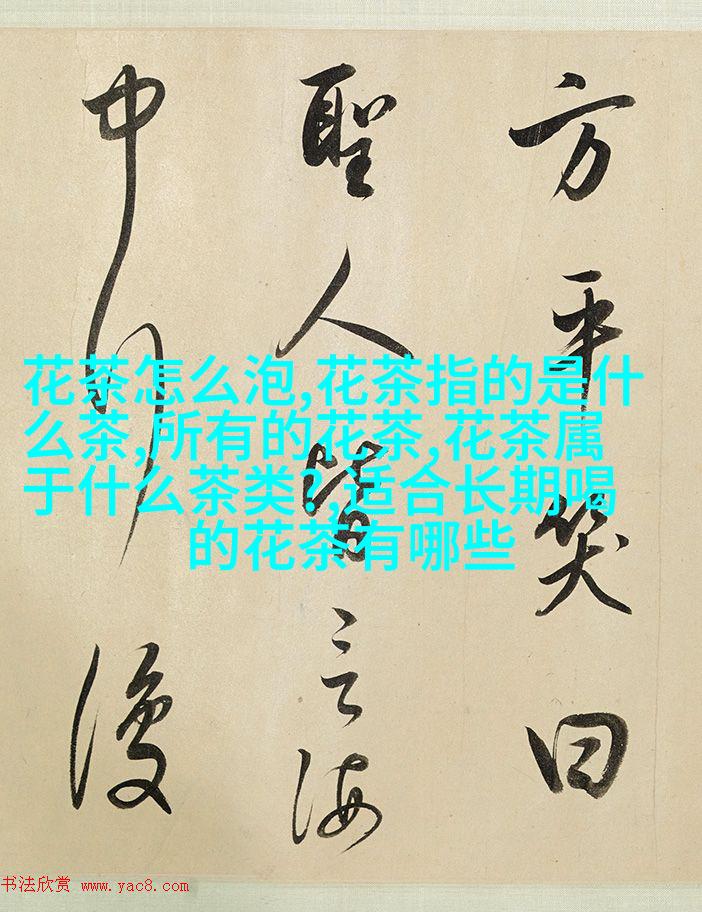 方平笑曰
聖人皆言海
中行復
花茶怎么泡,花茶指的是什
么茶,所有的花茶,花茶属
于什么茶类?,适合长期喝
的花茶有哪些
书法欣赏 www.yac8.com